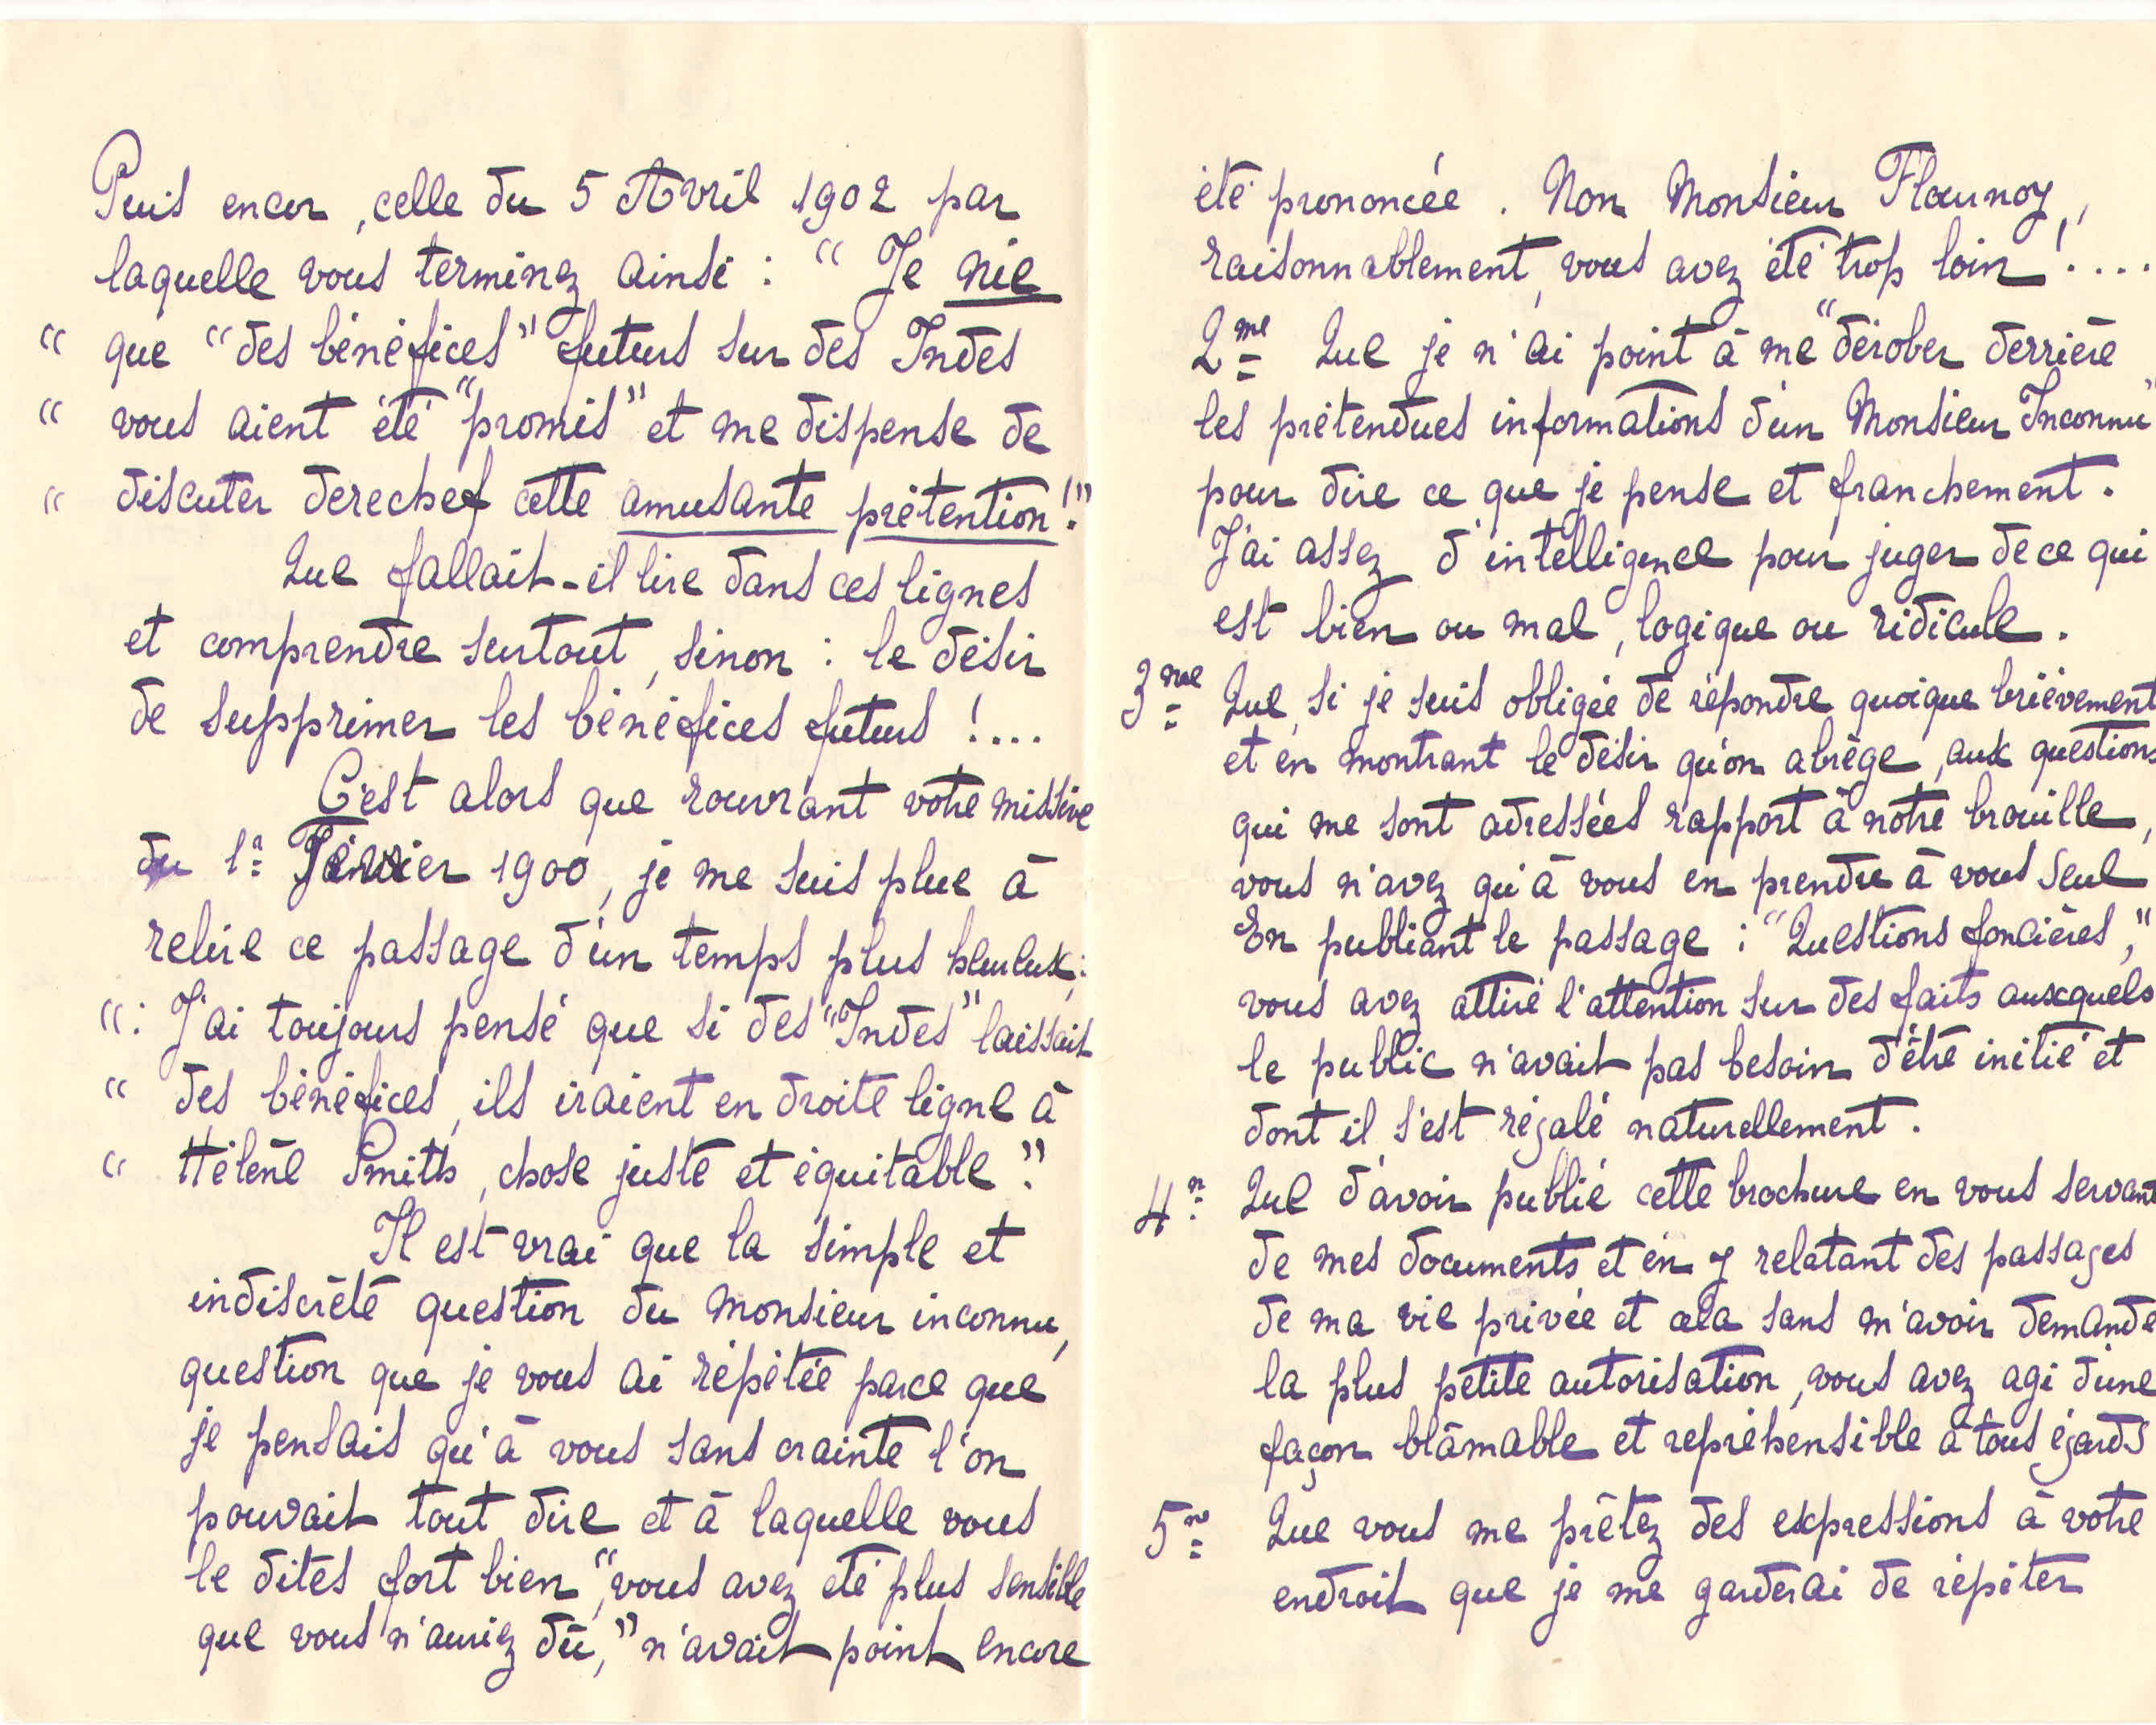 Puis encor, celle du 5 Avril 1902 par
laquelle vous terminez ainsi : " Je nie
" que "des bénéfices" futurs sur des Indes
" vous aient été "promis" et me dispense de
" discuter derechef cette amusante prétention!"
Que fallait-il lire dans ces lignes
et comprendre surtout, sinon : le désir
de supprimer les bénéfices futurs !....
C'est alors que rouvrant votre missive
du 1er Février 1900, je me suis plue à
relire ce passage d'un temps plus heureux :
": J'ai toujours pensé que si des "Indes" laissait
" des bénéfices, ils iraient en droite ligne à
" Hélène Smith, chose juste et équitable."
Il est vrai que la simple et
indiscrète question du Monsieur inconnu,
question que je vous ai répétée parce que
je pensais qu'à vous sans crainte l'on
pouvait tout dire et à laquelle vous
le dites fort bien, "vous avez été plus sensible
que vous n'auriez dû," n'avait point encore
été prononcée. Non Monsieur Flournoy,
raisonnablement, vous avez été trop loin !....
2me Que je n'ai point à me "dérober derrière
les prétendues informations d'un Monsieur Inconnu"
pour dire ce que je pense et franchement.
J'ai assez d'intelligence pour juger de ce qui
est bien ou mal, logique ou ridicule.
3me Que, si je suis obligée de répondre quoique brièvement
et en montrant le désir qu'on abrège, aux questions
qui me sont adressées rapport à notre brouille,
vous n'avez qu'à vous en prendre à vous seul
En publiant le passage : "Questions foncières,"
vous avez attiré l'attention sur des faits auxquels
le public n'avait pas besoin d'être initié et
dont il s'est régalé naturellement.
4e Que d'avoir publié cette brochure en vous servant
de mes documents et en y relatant des passages
de ma vie privée et cela sans m'avoir demandé
la plus petite autorisation, vous avez agi d'une
façon blâmable et repréhensible à tous égards
5me Que vous me prêtez des expressions à votre
endroit que je me garderai de répéter